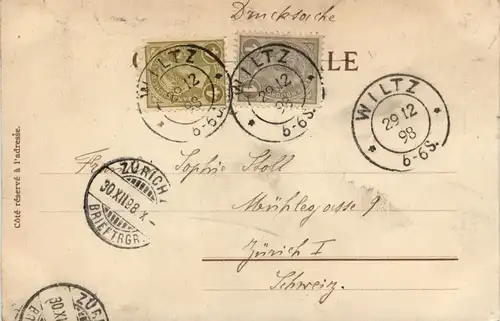 Drucksache
C LE
WILTZ
29 12
98
6-6S.
WILTZ
29 12
98
6-6S.
WILTZ
29 12
98
6-6S.
1
Côté réservé à l'adresse.
Sophie Stoll
Mühlegasse 9
Zürich I
Schweiz.
ZÜRICH
30 XII 98 X-
BRIEFTRGR.
ZÜR
30 XII